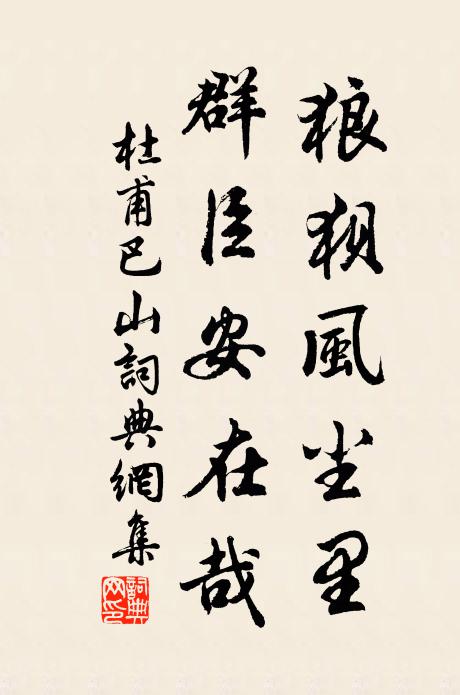 狼狽風尘里
群臣安在哉
杜甫巴山詞典網集
詞典网印